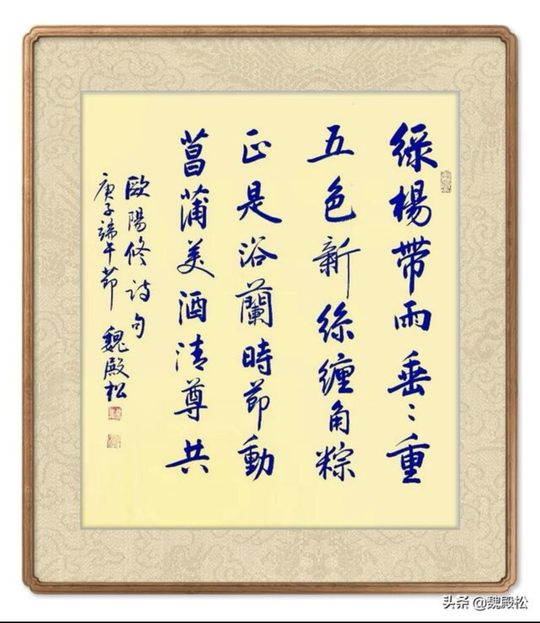 綠楊帶雨垂〻重
五色新絲纏角粽
正是浴蘭時節動
菖蒲美酒清尊共
歐陽修诗句
庚子端午節 魏殿松
头条 @魏殿松